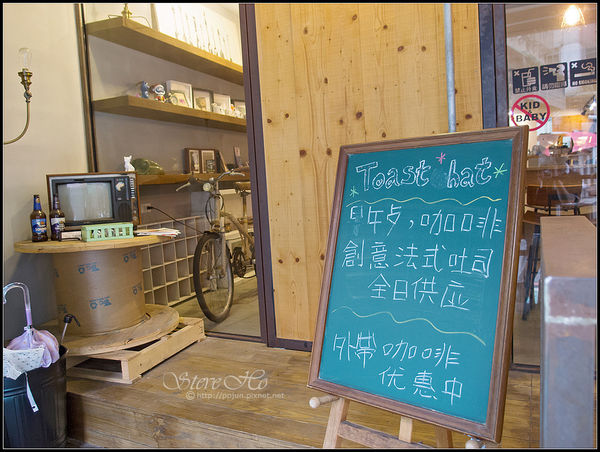 Toast hat
早午歺,咖啡
創意法式吐司
全日供应
外帶咖啡
优惠中
KID
BABY
NO SMOKING
Steve Ho
© http://ppjun.pixnet.net